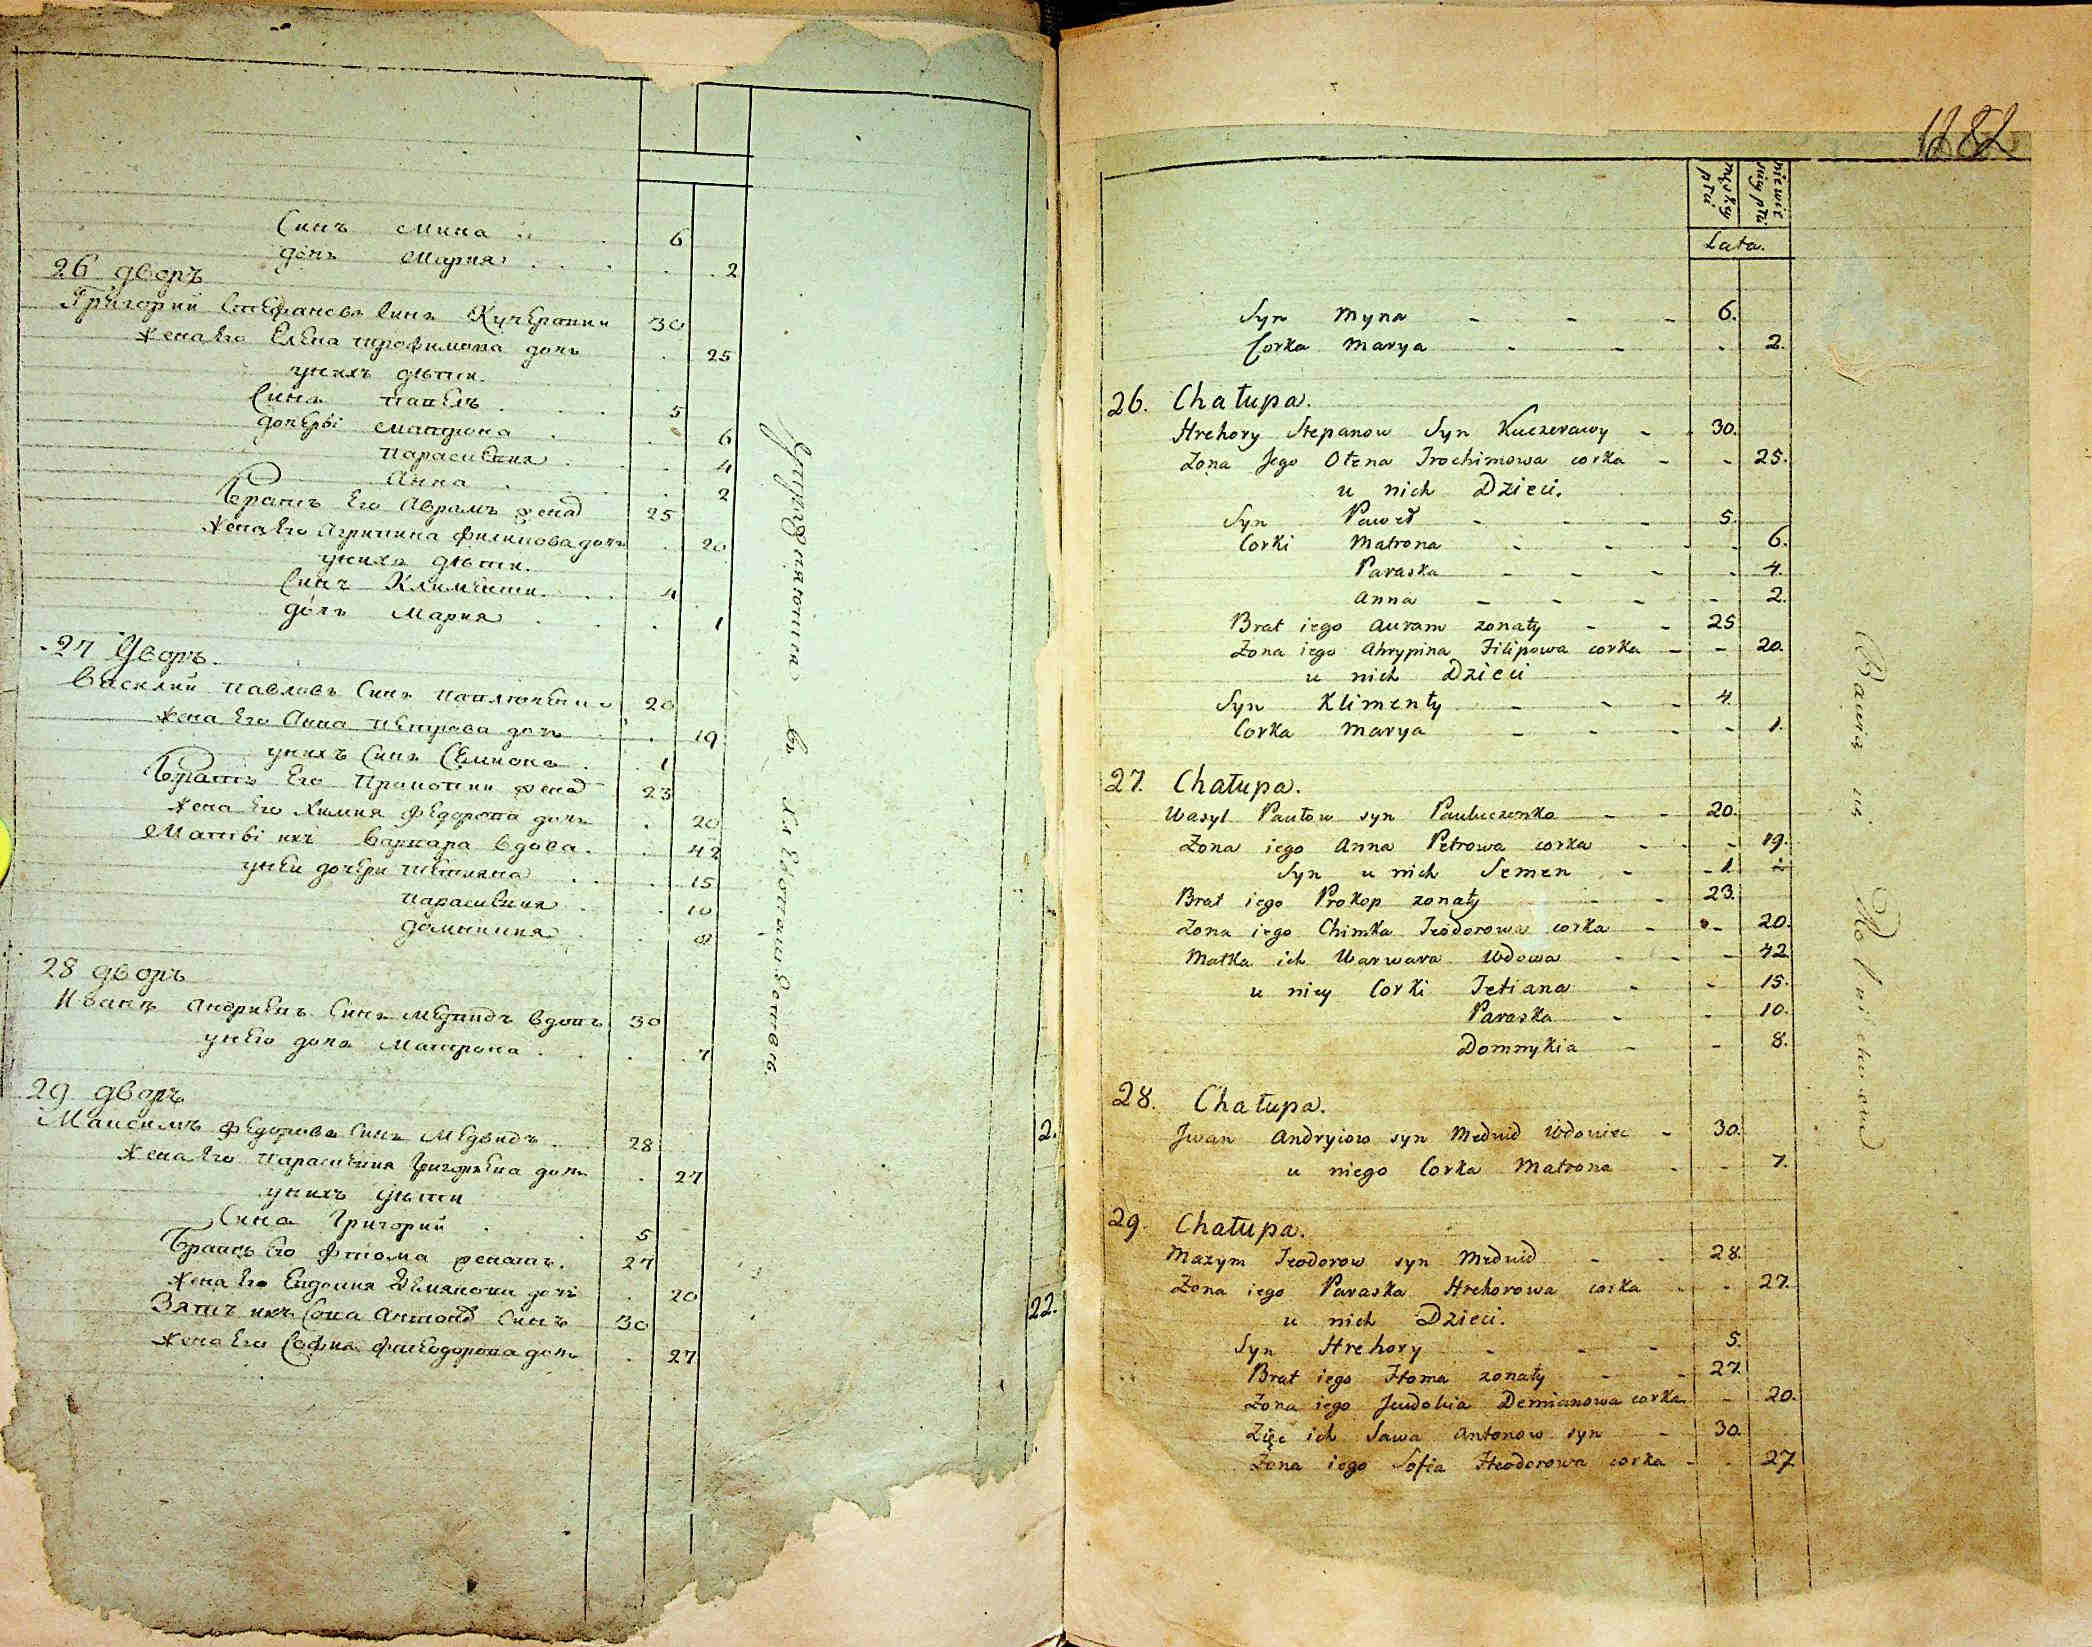 Синъ Мина 6
дочь Мария 2
26 дворъ
Григорий Стефановъ Синъ Кучеравий 30
жена Его Елена Трофимова дочь 25
у нихъ дѣти
Синъ Павелъ 5
дочери Матрона 6
Парасковия 4
Анна 2
Братъ Его Аврамъ женат 25
жена Его Агрипина Филипова дочь 20
у нихъ дѣти.
Синъ Климентий 4
дочь Мария 1
27 дворъ.
Василий Павловъ Синъ 20
жена Его Анна Петрова дочь 19
у нихъ Синъ Семионъ 1
Братъ Его Прокопий женат 23
жена Его Химия Федорова дочь 20
Мать ихъ Варвара вдова 42
у ней дочери Татияна 15
Парасковия 10
Домникия 8
28 дворъ
Иванъ Андриевъ Синъ Медвидъ вдовъ 30
у него дочь Матрона 7
29 дворъ
Максимъ Федоровъ Синъ Медвидъ 28
жена Его Парасковия Григориева дочь 27
у нихъ дѣти
Синъ Григорий 5
Братъ Его Фтома женатъ. 27
жена Его Евдокия Демянова дочь 20
Зять ихъ Сава Антонов Синъ 30
жена Его София Фтеодорова дочь 27
2.
22.
1282
męskey płci
niewieściey płci
Lata.
Syn Myna - - - 6.
Corka Marya - - - 2.
26. Chałupa.
Hrehory Stepanow Syn Kuczerawy - - 30.
Zona Jego Ołena Trochimowa corka - - 25.
u nich Dzieci.
Syn Paweł - - - 5.
Corki Matrona - - - 6.
Paraska - - - 4.
Anna - - - 2.
Brat iego Auram zonaty - - 25
Zona iego Ahrypina Filipowa corka - - 20.
u nich Dzieci
Syn Klimenty - - - 4.
Corka Marya - - - 1.
27. Chałupa.
Wasyl Pawłow syn Pauluczenko - - 20.
Zona iego Anna Petrowa corka - - 19.
Syn u nich Semen - - 1
Brat iego Prokop zonaty - - 23.
Zona iego Chimka Teodorowa corka - - 20.
Matka ich Warwara Wdowa - - - 42
u niey Corki Tetiana - - 15.
Paraska - - 10.
Domnykia - - 8.
28. Chałupa.
Jwan Andryiow syn Medwid Wdowiec - 30.
u niego Corka Matrona - - 7.
29. Chałupa.
Maxym Teodorow syn Medwid - - 28.
Zona iego Paraska Hrehorowa corka - - 27.
u nich Dzieci.
Syn Hrehory - - - 5.
Brat iego Ftoma zonaty - - 27.
Zona iego Jewdokia Demianowa corka - 20.
Zięc ich Sawa Antonow syn - 30.
Zona iego Sofia Fteodorowa corka - - 27